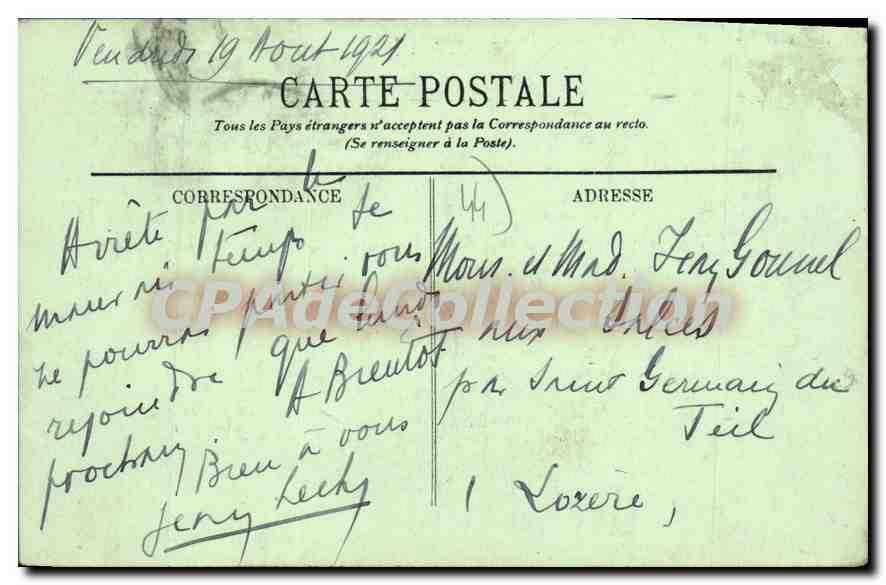 Vendredi 19 Aout 1921
CARTE POSTALE
Tous les Pays étrangers n'acceptent pas la Correspondance au recto.
(Se renseigner à la Poste).
CORRESPONDANCE
ADRESSE
44)
Arrêté par le
mauvais temps je
ne pourrai partir vous
rejoindre que lundi
prochain. A Bientôt
Bien à vous
Jeny
Mons. et Mad. Jeny Gounel
aux Salces
par Saint Germain du
Teil
( Lozère,
CPAdeCollection.com